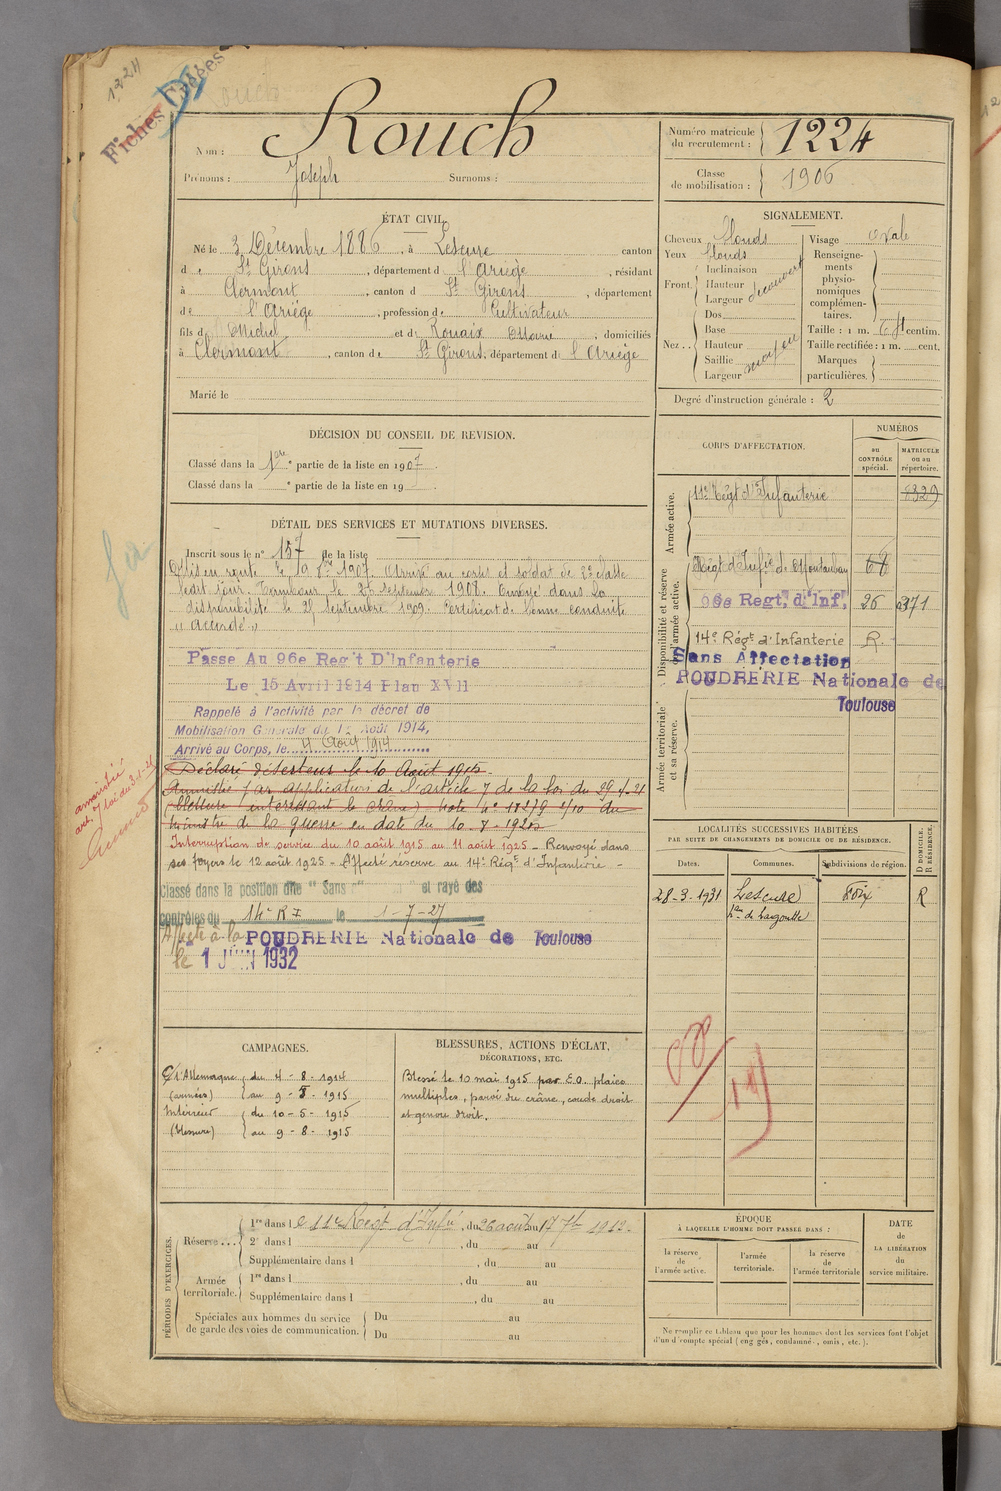 1224
Fiches
Nom : Rouch
Prénoms : Joseph Surnoms :
Numéro matricule du recrutement : 1224
Classe de mobilisation : 1906
ÉTAT CIVIL.
Né le 3 Décembre 1886, à Lescure canton
de St Girons, département de l'Ariège, résidant
à Clermont, canton de St Girons, département
de l'Ariège, profession de Cultivateur
fils de Michel et de Rouaix Marie, domiciliés
à Clermont, canton de St Girons, département de l'Ariège
Marié le
SIGNALEMENT.
Cheveux blonds
Yeux
Front. Inclinaison
Hauteur
Largeur
découvert
Nez . . Dos
Base
Hauteur
Saillie
Largeur
moyen
Visage ovale
Renseignements physionomiques complémentaires.
Taille : 1 m. centim.
Taille rectifiée : 1 m. cent.
Marques particulières.
Degré d'instruction générale : 2
DÉCISION DU CONSEIL DE REVISION.
Classé dans la 1ere partie de la liste en 1907.
Classé dans la e partie de la liste en 19
CORPS D'AFFECTATION.
NUMÉROS
au CONTRÔLE spécial.
MATRICULE ou au répertoire.
Armée active.
11e Régt d'Infanterie 8329
Disponibilité et réserve de l'armée active.
Régt d'Infie de Montauban 68
96e Regt. d'Inf. 26
14e Régt d'Infanterie R.
Sans Affectation
POUDRERIE Nationale de
Toulouse
Armée territoriale et sa réserve.
DÉTAIL DES SERVICES ET MUTATIONS DIVERSES.
Inscrit sous le n° 157 de la liste
Mis en route le 1907. Arrivé au corps et soldat de 2e classe
ledit jour. Tambour le 26 septembre 1908. Envoyé dans la
disponibilité le 25 septembre 1909. Certificat de bonne conduite
"accordé"
Passe Au 96e Reg't D'Infanterie
Le 15 Avril 1914 Plan XVII
Rappelé à l'activité par le décret de
Mobilisation Générale du 1er Août 1914,
Arrivé au Corps, le 4 Août 1914
Déclaré déserteur le 10 Août 1915.
Amnistié par application de l'article 7 de la loi du 29-4-21
(blessure intéressant le crâne) Note n° 17279 1/10 du
Ministre de la guerre en date du 10-7-1925
Interruption de service du 10 août 1915 au 11 août 1925 - Renvoyé dans
ses foyers le 12 août 1925 - Affecté réserve au 14e Régt d'Infanterie -
Classé dans la position dite "Sans " et rayé des
contrôles du 14e R I le 1-7-27
Affecté à la POUDRERIE Nationale de Toulouse
le 1 JUIN 1932
amnistié
LOCALITÉS SUCCESSIVES HABITÉES
PAR SUITE DE CHANGEMENTS DE DOMICILE OU DE RÉSIDENCE.
Dates. Communes. Subdivisions de région. D DOMICILE. R RÉSIDENCE.
28-3-1931 Lescure Foix R
CAMPAGNES.
C/ l'Allemagne du 4 - 8 - 1914
(armées) au 9 - 5 - 1915
Intérieur du 10 - 5 - 1915
(blessure) au 9 - 8 - 1915
BLESSURES, ACTIONS D'ÉCLAT,
DÉCORATIONS, ETC.
Blessé le 10 mai 1915 par E.O. plaies
multiples, paroi du crâne, coude droit
et genou droit.
PÉRIODES D'EXERCICES.
Réserve . . . 1re dans le 11e Régt d'Infie, du 26 août au 17 7bre 1912.
2e dans l , du au
Supplémentaire dans l , du au
Armée territoriale. 1re dans l , du au
Supplémentaire dans l , du au
Spéciales aux hommes du service
de garde des voies de communication. Du au
Du au
ÉPOQUE
À LAQUELLE L'HOMME DOIT PASSER DANS :
la réserve de l'armée active.
l'armée territoriale.
la réserve de l'armée territoriale
DATE
de
LA LIBÉRATION
du
service militaire.
Ne remplir ce tableau que pour les hommes dont les services font l'objet
d'un décompte spécial (engagés, condamnés, omis, etc.).